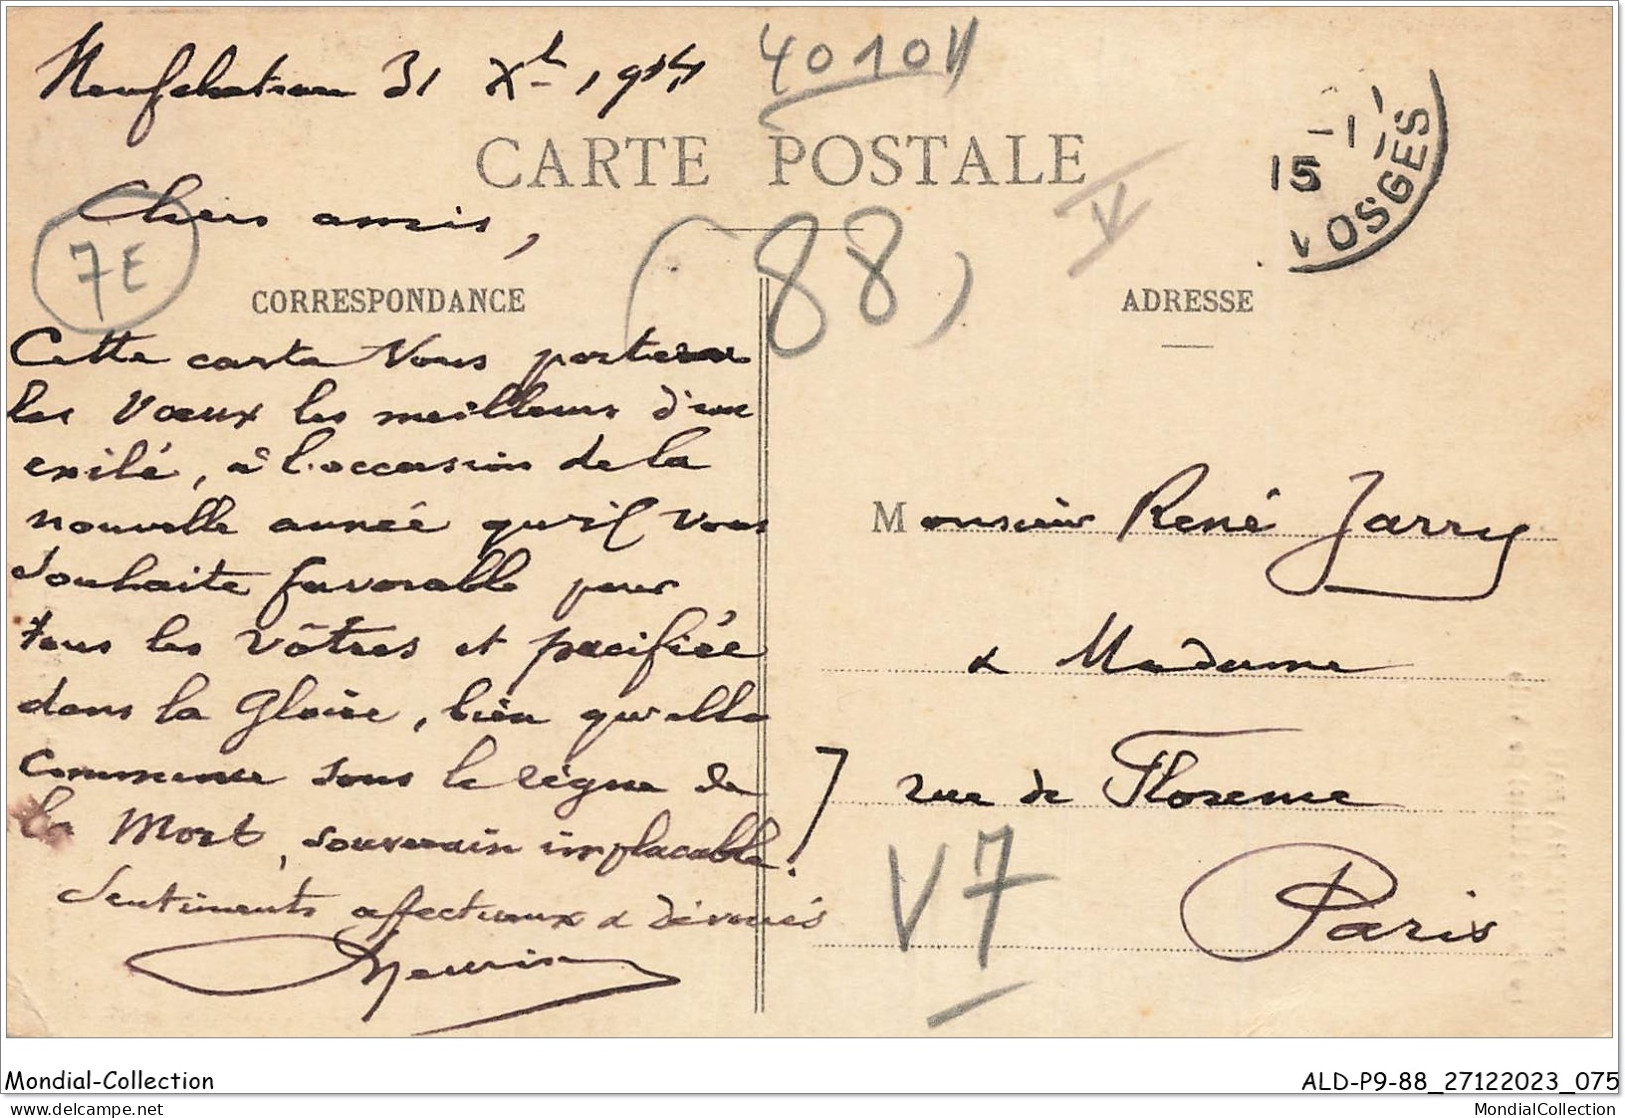 Neufchateau 31 Xbre 1914
40104
CARTE POSTALE
15 -1
VOSGES
Chers amis,
7E
(88)
V
CORRESPONDANCE
ADRESSE
Cette carte Vous portera
les Vœux les meilleurs d'un
exilé, à l'occasion de la
nouvelle année qu'il vous
souhaite favorable pour
tous les vôtres et pacifiée
dans la Gloire, bien qu'elle
commence sous le règne de
la Mort, souverain implacable!
Sentiments affectueux & dévoués
Monsieur René Jarry
& Madame
7 rue de Florence
Paris
V7
Mondial-Collection
ALD-P9-88_27122023_075
delcampe.net
MondialCollection